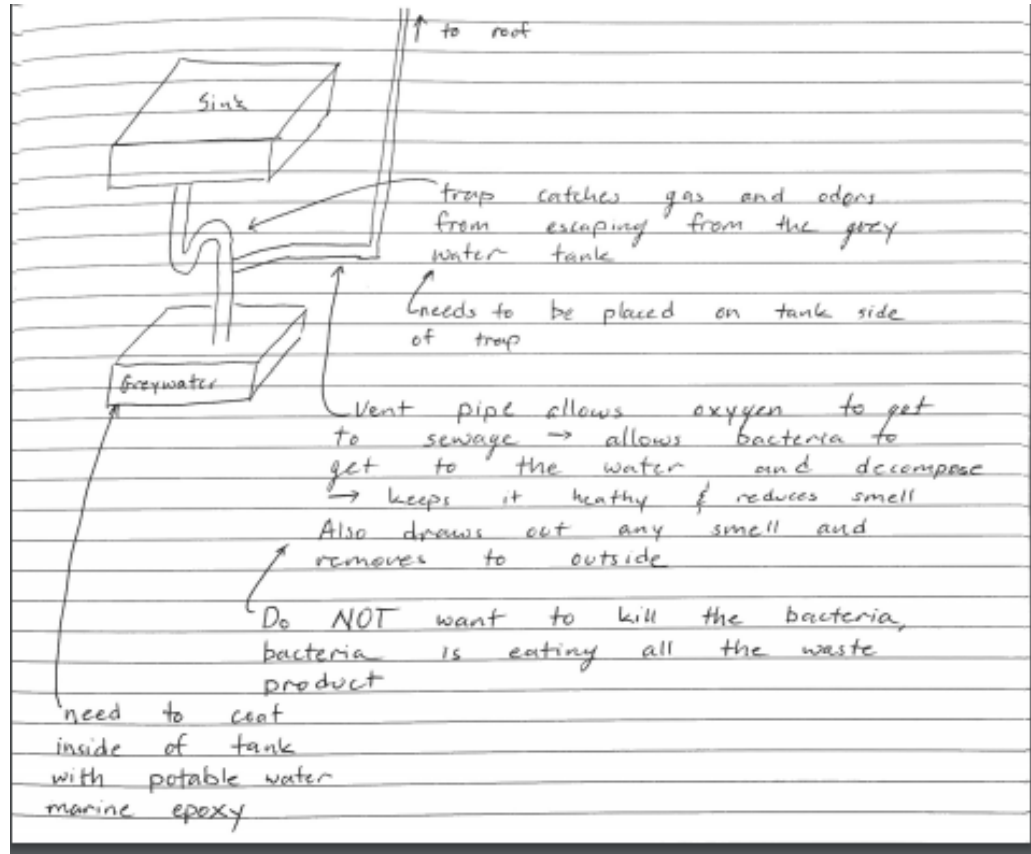 to roof
Sink
trap catches gas and odors
from escaping from the grey
water tank
needs to be placed on tank side
of trap
Greywater
Vent pipe allows oxygen to get
to sewage → allows bacteria to
get to the water and decompose
→ keeps it heathy & reduces smell
Also draws out any smell and
removes to outside
Do NOT want to kill the bacteria,
bacteria is eating all the waste
product
need to coat
inside of tank
with potable water
marine epoxy